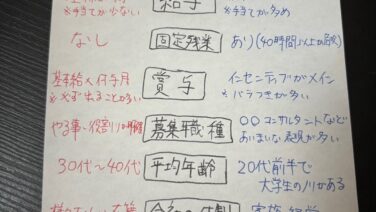 ※手当てが少ない
給与
※手当てが多め
なし
固定残業
あり(40時間以上が
基本給×何ヶ月
※必ず出ることが多い
賞与
インセンティブがメイン
※バラつきが多い
やる事・役割が明確
募集職種
○○コンサルタントなど
あいまいな表現が多い
30代〜40代
平均年齢
20代前半で
大学生のノリがある